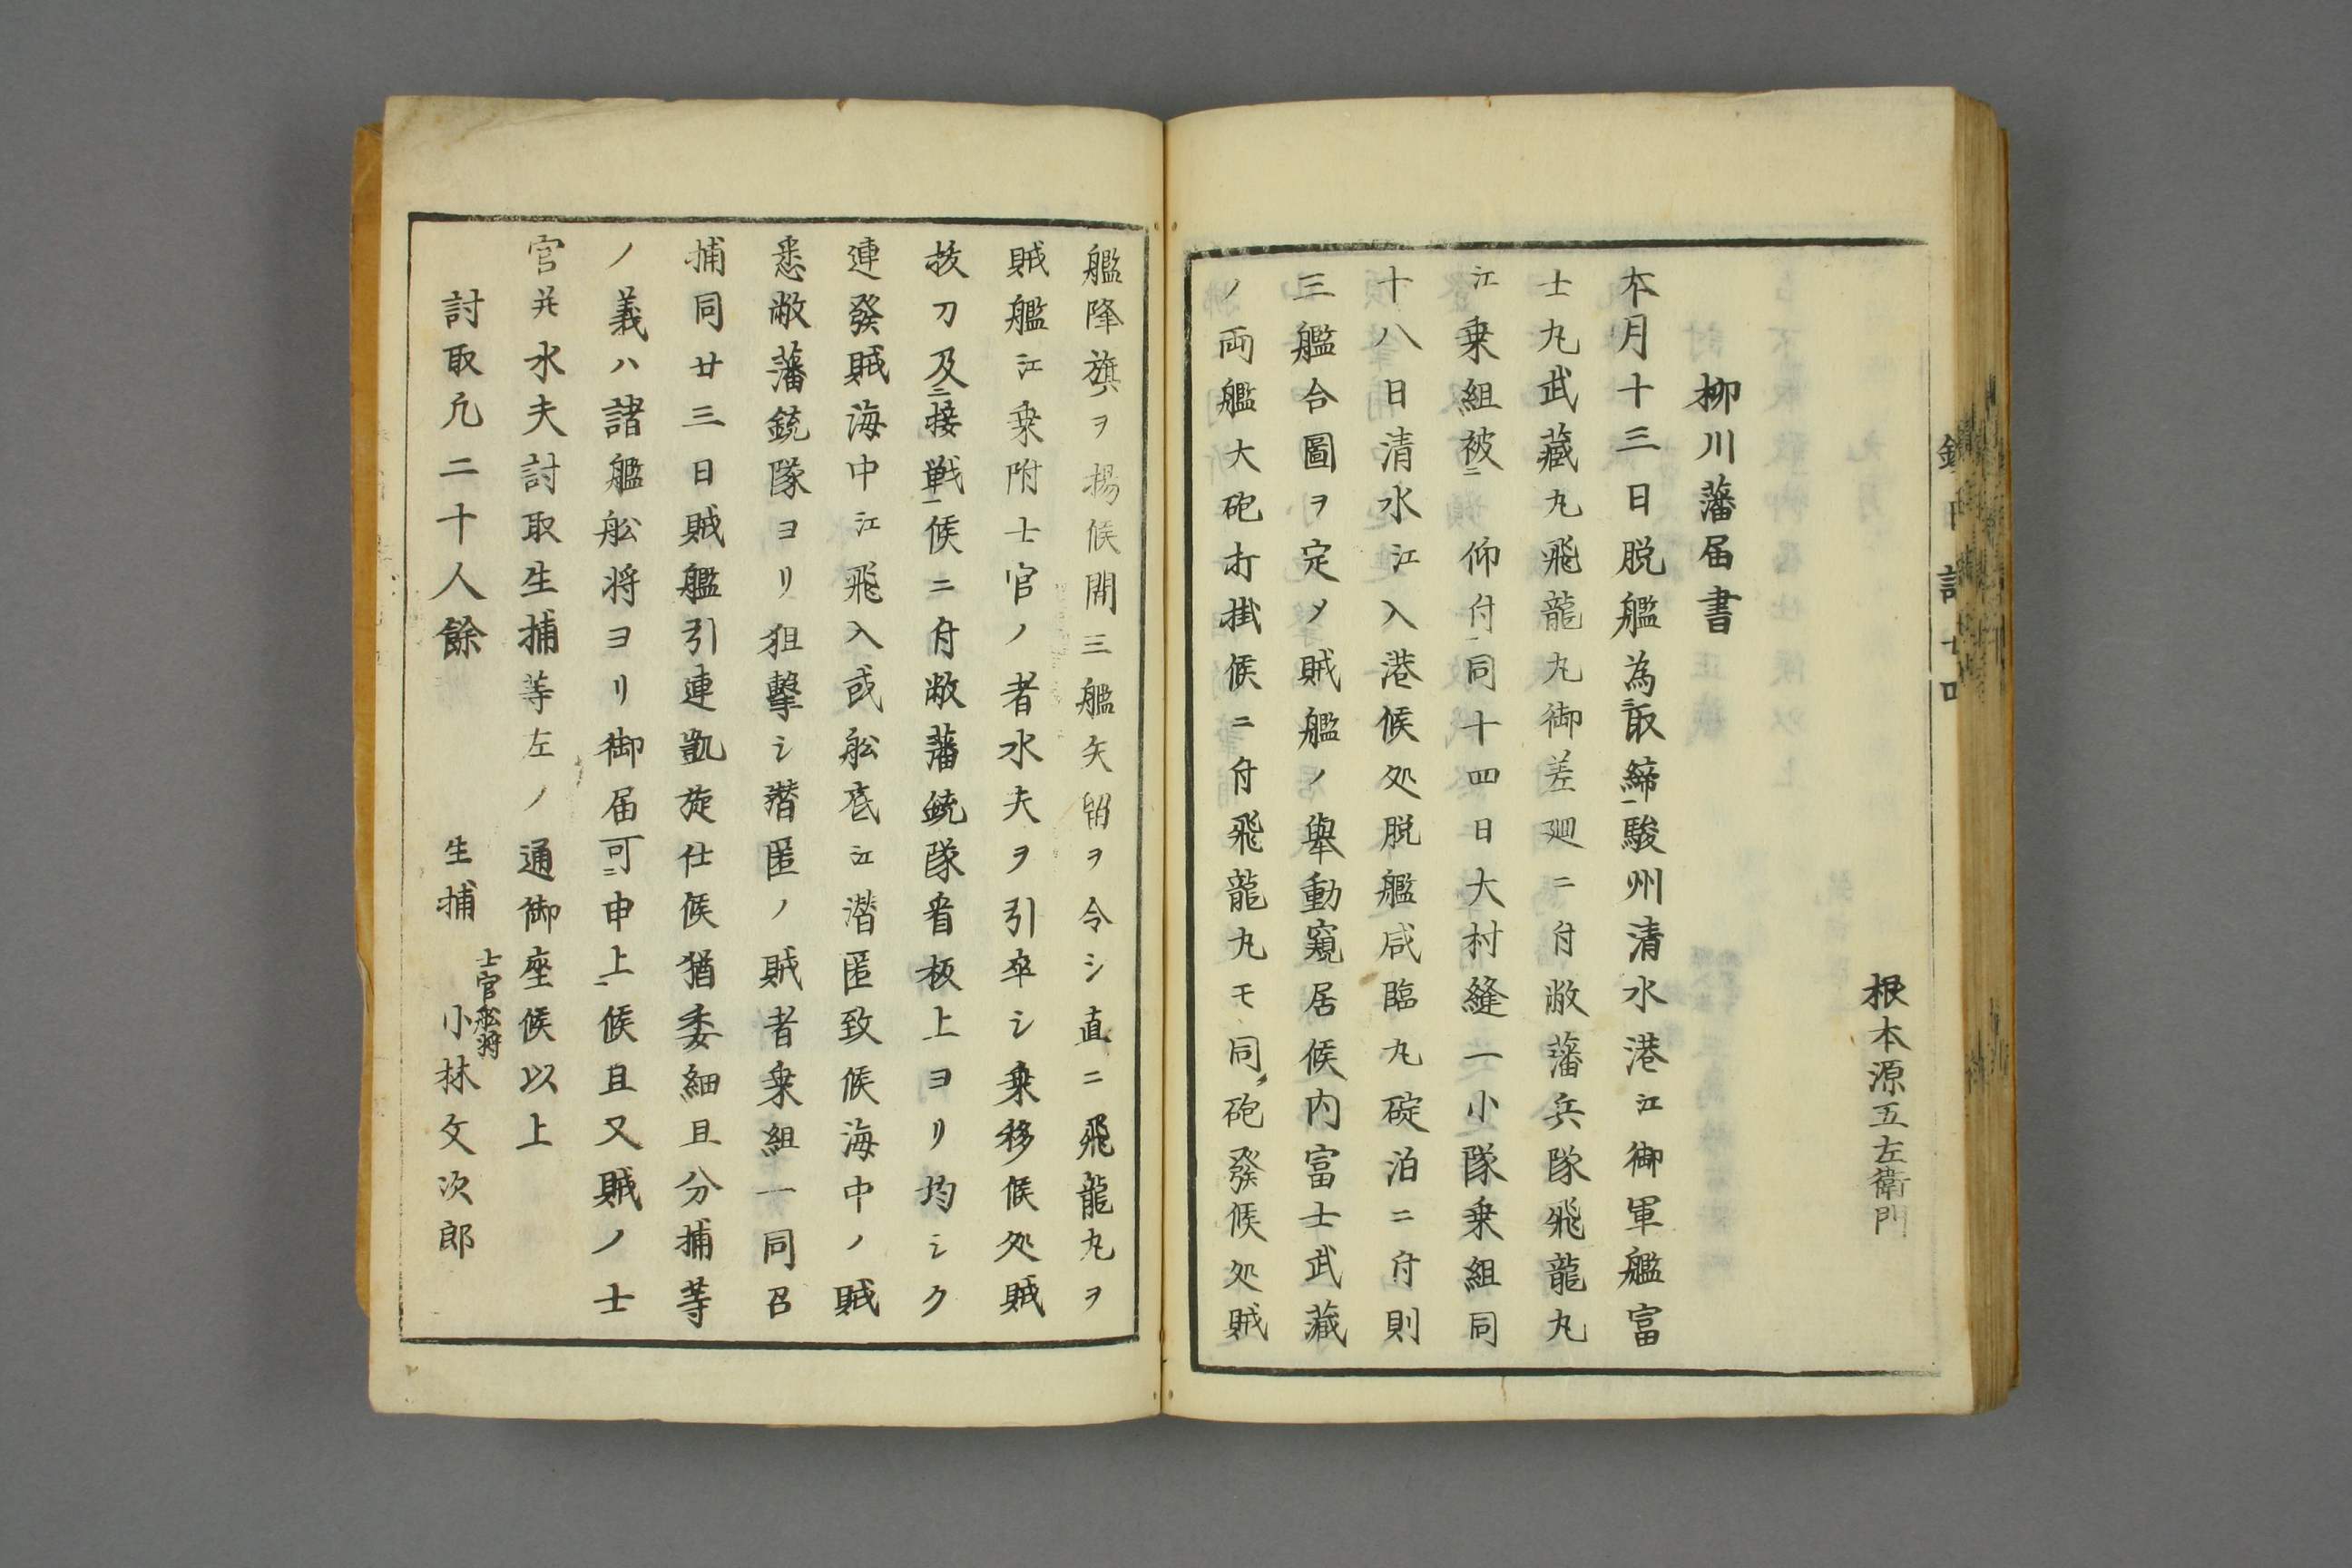 根本源五左衛門
柳川藩届書
本月十三日脱艦為二取締一駿州清水港江御軍艦富
士丸武藏丸飛龍丸御差廻ニ付敝藩兵隊飛龍丸
江乗組被二仰付一同十四日大村縫一小隊乗組同
十八日清水江入港候処脱艦咸臨丸碇泊ニ付則
三艦合圖ヲ定メ賊艦ノ舉動窺居候内富士武藏
ノ両艦大砲打掛候ニ付飛龍丸モ同々砲發候処賊
艦降旗ヲ揚候間三艦矢留ヲ令シ直ニ飛龍丸ヲ
賊艦江乗附士官ノ者水夫ヲ引卒シ乗移候処賊
抜刀及二接戦一候ニ付敝藩銃隊者板上ヨリ均シク
連發賊海中江飛入或舩底江潜匿致候海中ノ賊
悉敝藩銃隊ヨリ狙擊シ潜匿ノ賊者乗組一同召
捕同廿三日賊艦引連凱旋仕候猶委細且分捕等
ノ義ハ諸艦舩将ヨリ御届可二申上一候且又賊ノ士
官并水夫討取生捕等左ノ通御座候以上
討取凡二十人餘
生捕 士官舩将 小林文次郎